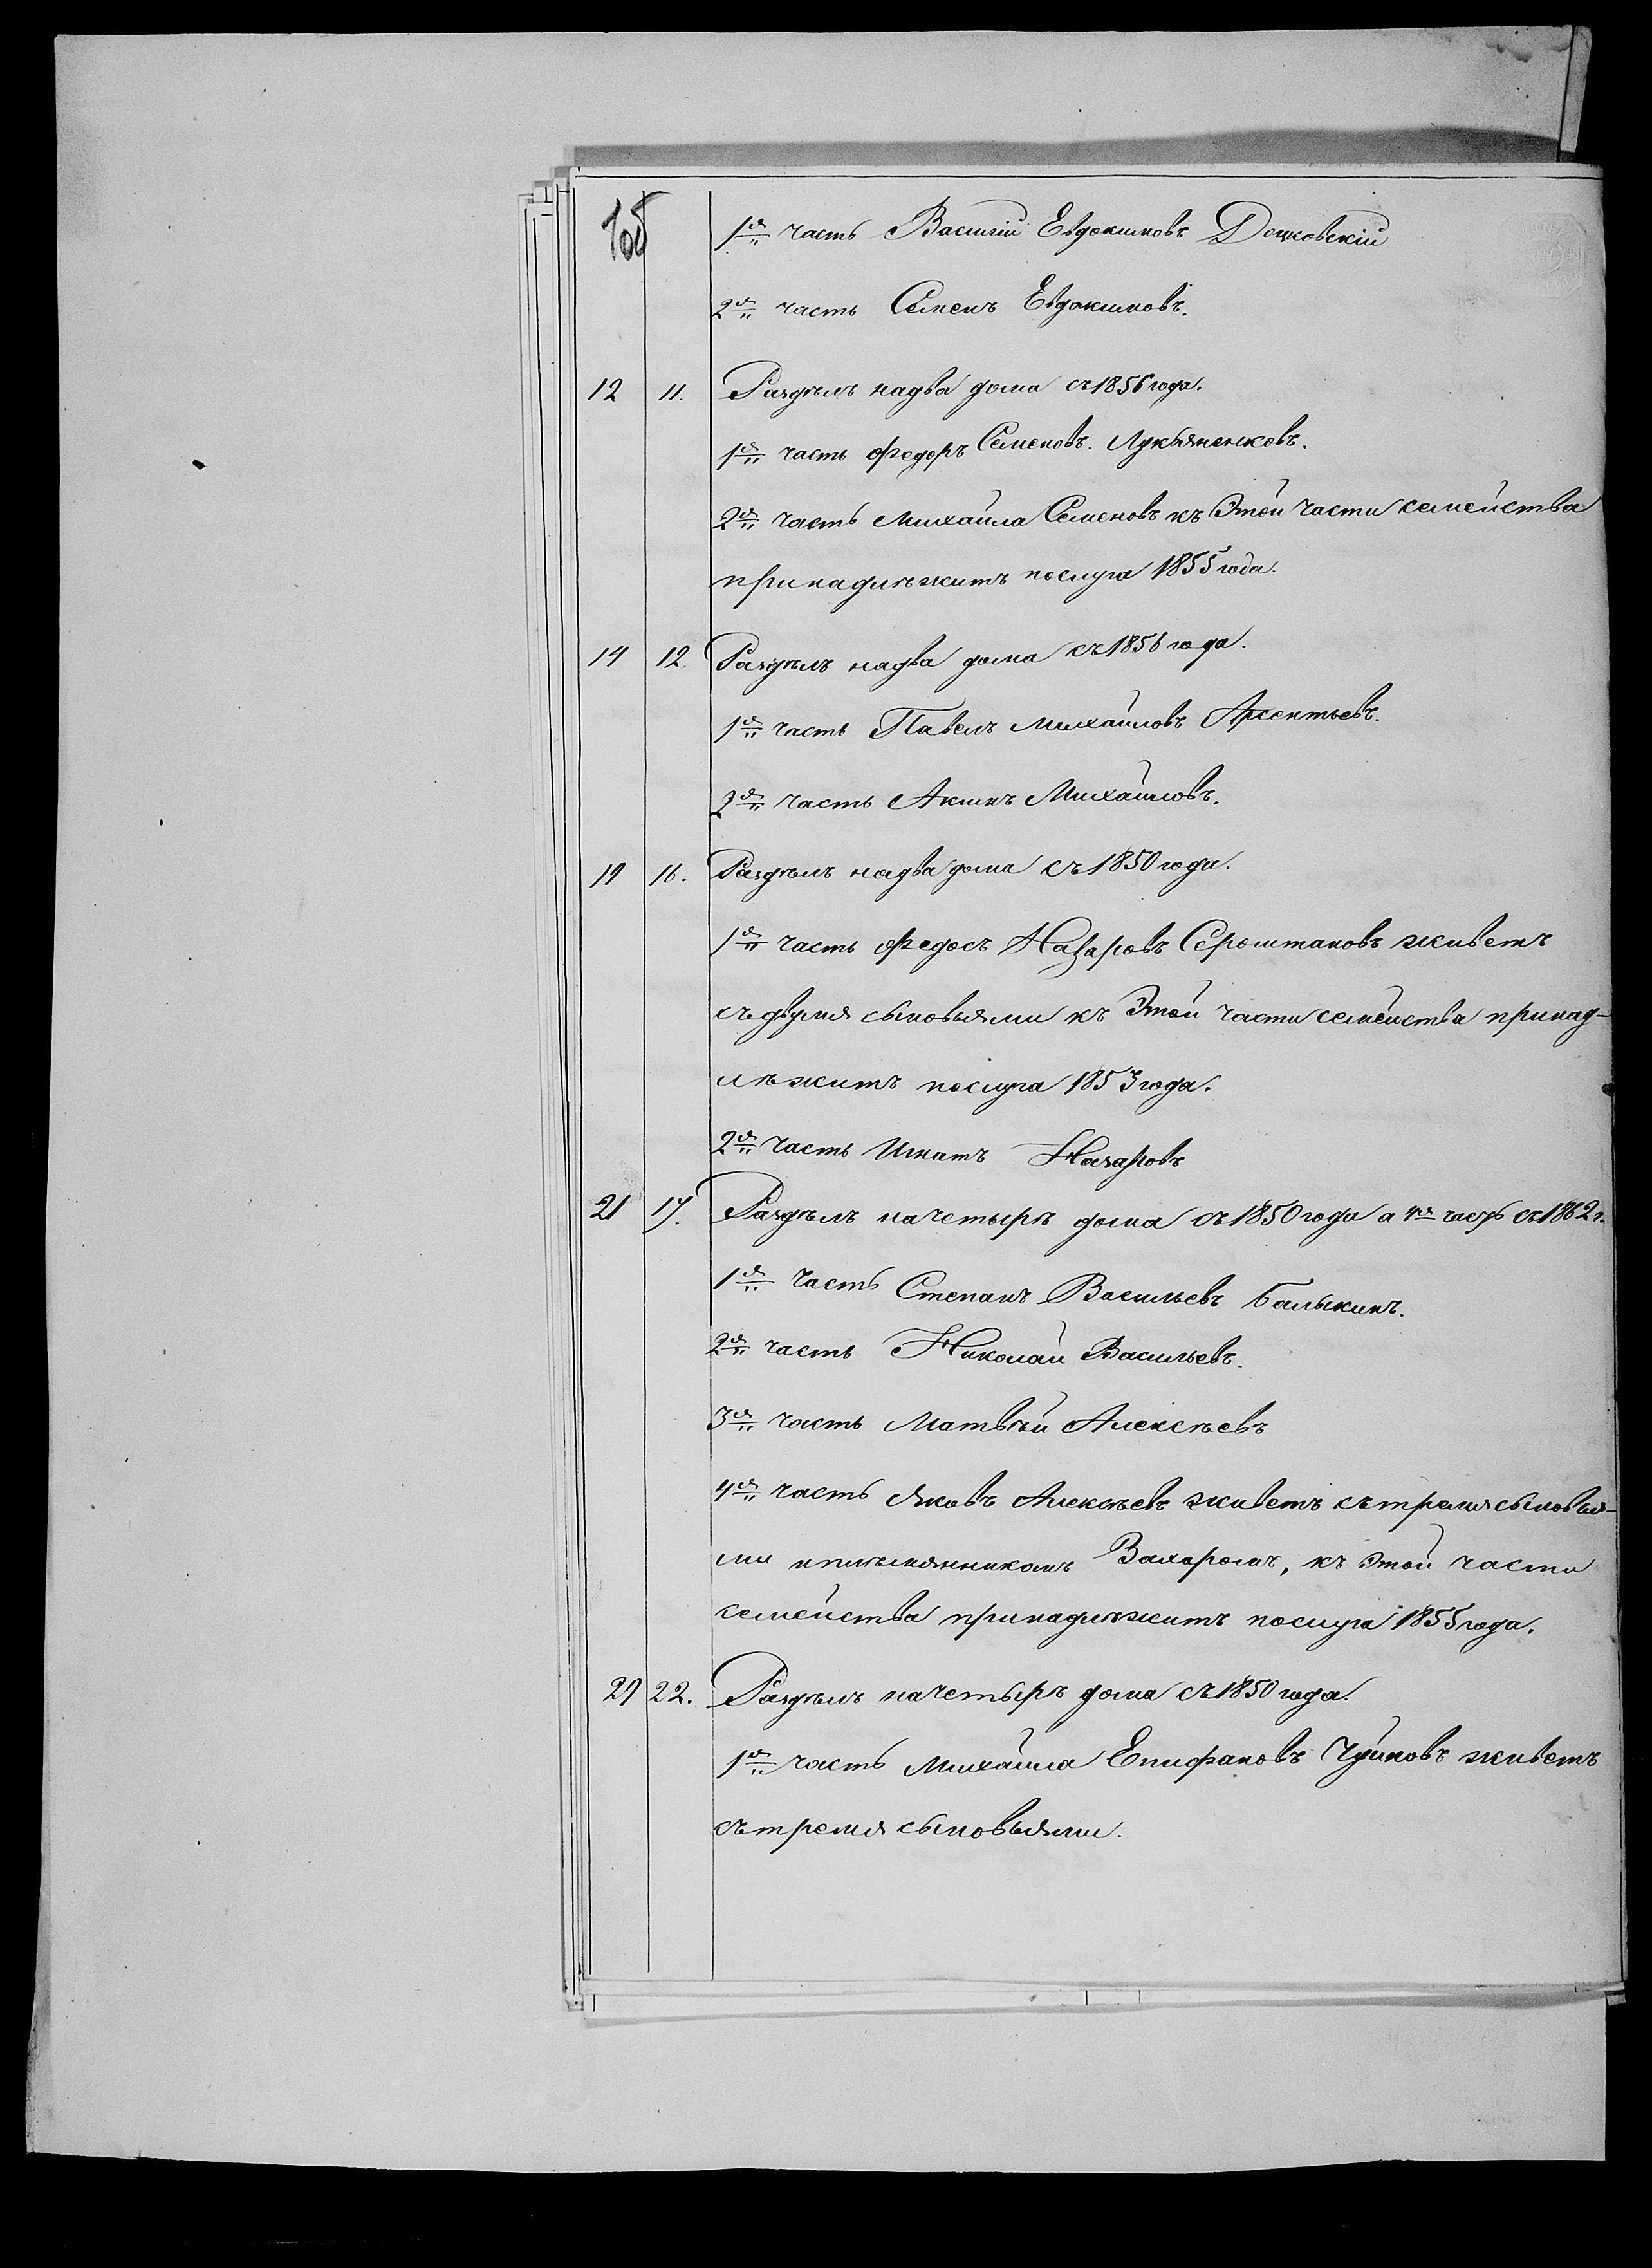 1я часть Василiй Евдокимовъ Доцковскiй
2я часть Семенъ Евдокимовъ.
12 11. Раздѣлъ надва дома съ 1856 года.
1я часть Федоръ Семеновъ. Лукьяненковъ.
2я часть Михайла Семеновъ къ Этой части семейства
принадлѣжитъ послуга 1855 года.
14 12. Раздѣлъ надва дома съ 1856 года.
1я часть Павелъ Михайловъ Арсентьевъ.
2я часть Акимъ Михайловъ.
19 16. Раздѣлъ надва дома съ 1850 года.
1я часть Федосъ Назаровъ Сероштановъ живетъ
съ двумя сыновьями къ Этой части семейства принад-
лѣжитъ послуга 1853 года.
2я часть Игнатъ Назаровъ
21 17. Раздѣлъ на четырѣ дома съ 1850 года а 4я часть съ 1862 г.
1я часть Степанъ Васильевъ Балыкинъ.
2я часть Николай Васильевъ.
3я часть Матвѣй Алексѣевъ
4я часть Яковъ Алексѣевъ живетъ съ тремя сыновья-
ми и племянникомъ Захаромъ, къ Этой части
семейства принадлѣжитъ послуга 1855 года.
29 22. Раздѣлъ на четырѣ дома съ 1850 года.
1я часть Михайла Епифановъ Чуйковъ живетъ
съ тремя сыновьями.